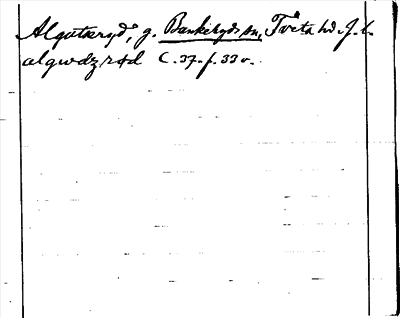 Algutsryd, g. Bankeryds sn, Tveta hd. J. l.
algwdzryd C. 37. f. 33 v.